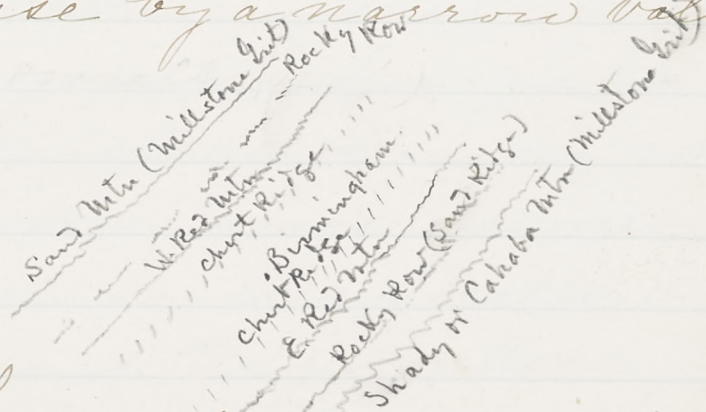 by a narrow
Sand Mtn (Millstone Grit)
Rocky Row
W. Red Mtn
Chert Ridge
Birmingham
Chert Ridge
E. Red Mtn
Rocky Row (Sand Ridge)
Shady or Cahaba Mtn (Millstone Grit)